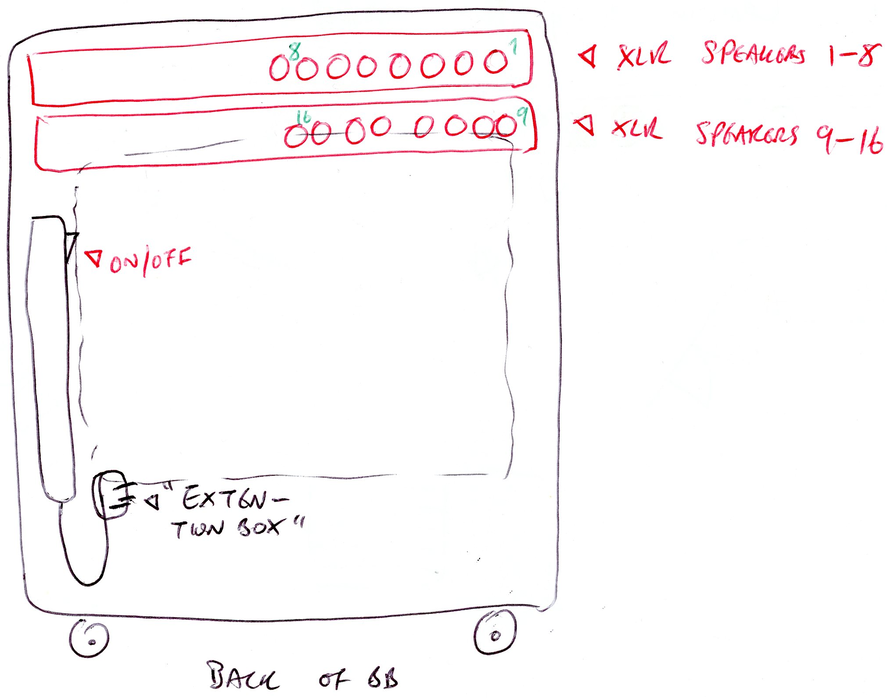 8 1
XLR SPEAKERS 1-8
16 9
XLR SPEAKERS 9-16
ON/OFF
"EXTEN-
TION BOX"
BACK OF BB